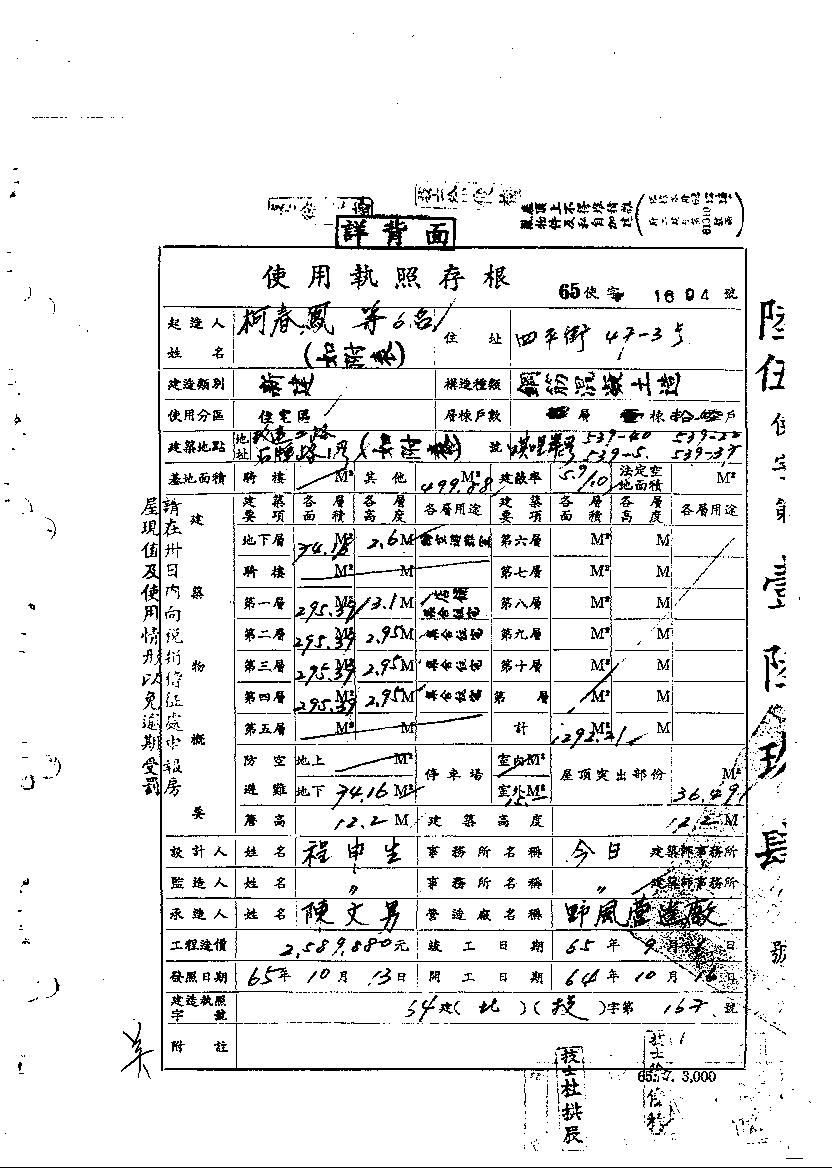 詳背面
使用執照存根
65使字 1694 號
起造人姓名 柯春鳳 等6名 住址 四平街 47-3号
(如附表)
建造類別 新建 構造種類 鋼筋混凝土造
使用分區 住宅區 層棟戶數 層 棟 戶
建築地點 地址 石牌路 號 唭哩岸 539-40
539-5. 539-37
基地面積 騎樓 M² 其他 499.88 M² 建蔽率 5.9/10 法定空地面積 M²
建築要項 各層面積 各層高度 各層用途 建築要項 各層面積 各層高度 各層用途
地下層 74.16 M² 2.6 M 第六層 M² M
騎樓 M² M 第七層 M² M
第一層 295.39 M² 3.1 M 店舖 集合住宅 第八層 M² M
第二層 295.39 M² 2.95 M 集合住宅 第九層 M² M
第三層 295.39 M² 2.95 M 集合住宅 第十層 M² M
第四層 295.39 M² 2.95 M 集合住宅 第 層 M² M
第五層 M² M 計 1292.21 M² M
建築物概要
防空避難 地上 M² 停車場 室內 M² 屋頂突出部份 36.49 M²
地下 74.16 M² 室外 M²
簷高 12.2 M 建築高度 12.2 M
設計人 姓名 程申生 事務所名稱 今日 建築師事務所
監造人 姓名 〃 事務所名稱 〃 建築師事務所
承造人 姓名 陳文男 營造廠名稱 野風營造廠
工程造價 2,589,880元 竣工日期 65年9月 日
發照日期 65年10月13日 開工日期 64年10月16日
建造執照字號 64建(北)(投)字第 167 號
附註
65. 7. 3,000
請在卅日內向稅捐稽征處申報房
屋現值及使用情形以免逾期受罰
陸伍使字第壹陸玖肆號
技士杜拱辰